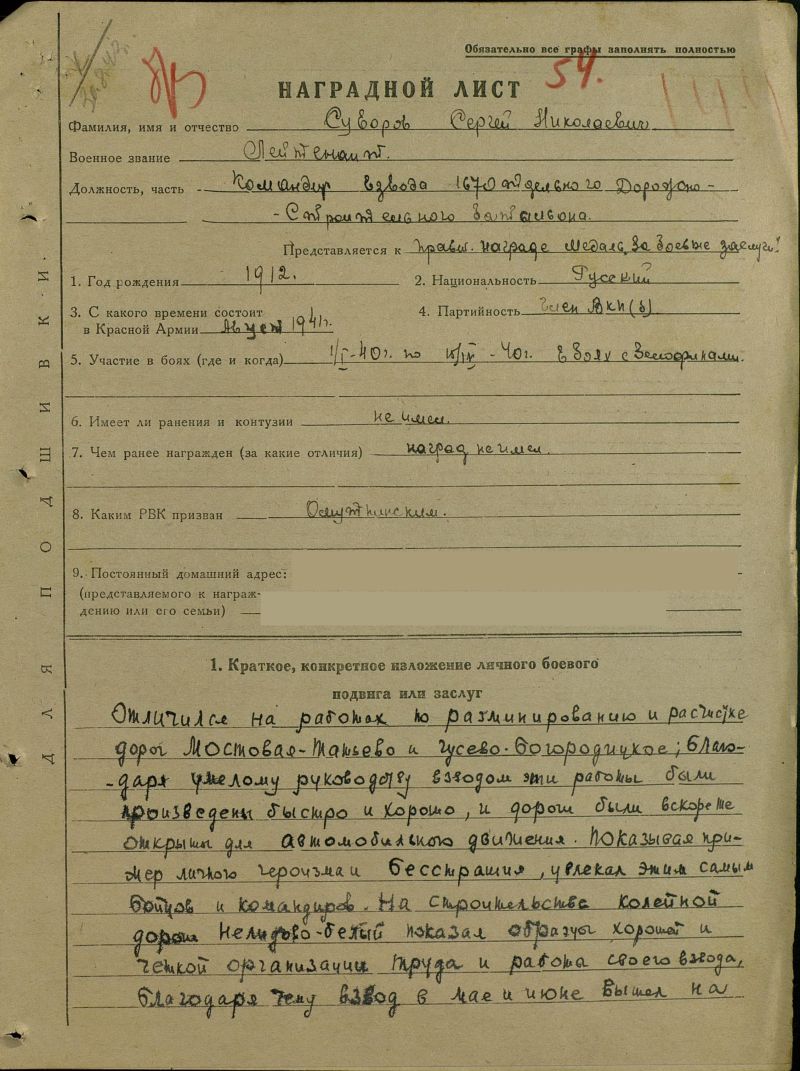 Обязательно все графы заполнять полностью
54.
НАГРАДНОЙ ЛИСТ
Фамилия, имя и отчество Суворов Сергей Николаевич
Военное звание Лейтенант.
Должность, часть - Командир взвода 167 отдельного Дорожно-
-Строительного батальона.
Представляется к правит. награде медаль "За боевые заслуги"
1. Год рождения 1912.
2. Национальность Русский
3. С какого времени состоит
в Красной Армии Август 1941г.
4. Партийность член ВКП(б)
5. Участие в боях (где и когда) 40г. по 40г. в боях с белофинами.
6. Имеет ли ранения и контузии не имел.
7. Чем ранее награжден (за какие отличия) наград не имел.
8. Каким РВК призван
9. Постоянный домашний адрес:
(представляемого к награж-
дению или его семьи)
1. Краткое, конкретное изложение личного боевого
подвига или заслуг
Отличился на работах по разминированию и расчистке
дорог Мостовая-Татьево и Гусево-Богородицкое; благо-
-даря умелому руководству взводом эти работы были
произведены быстро и хорошо, и дороги были вскоре
открыты для автомобильного движения. Показывая при-
мер личного героизма и бесстрашия, увлекал этим самым
бойцов и командиров. На строительстве колейной
дороги Нелидово-Белый показал образцы хорошей и
четкой организации труда и работы своего взвода,
благодаря чему взвод в мае и июне вышел на
ДЛЯ ПОДШИВКИ